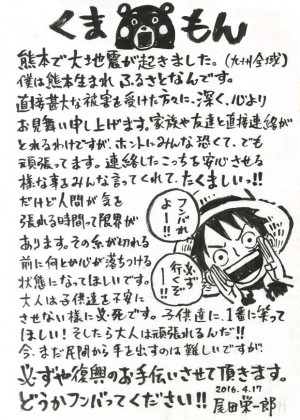 くまもん
熊本で大地震が起きました。(九州全域)
僕は熊本生まれ ふるさとなんです。
直接甚大な被害を受けた方々に、深く、心より
お見舞い申し上げます。家族や友達と直接連絡が
とれるわけですが、ホントにみんな恐くて、でも
頑張ってます。連絡したこっちを安心させる
様な事をみんな言ってくれて、たくましいっ!!
だけど人間が気を
張れる時間って限界が
あります。その糸がきれる
前に何とか心が落ちつける
状態になってほしいです。
大人は子供達を不安に
させない様に必死です。子供達に、1番に笑って
ほしい!そしたら大人は頑張れるんだ!!
今、まだ民間から手を出すのは難しいですが、
必ずや復興のお手伝いさせて頂きます。
どうかフンバってください!!
フンバれよー!!
必ず行くぞー!!
2016.4.17
尾田栄一郎